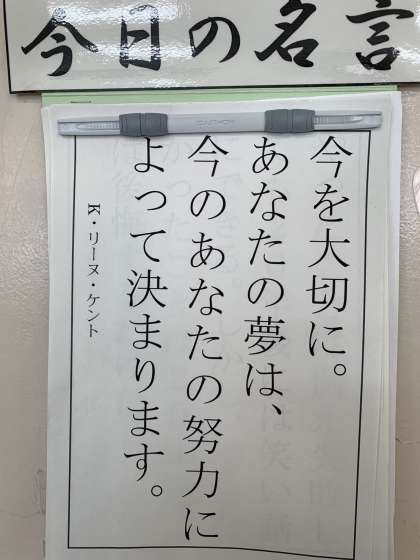 今日の名言
今を大切に。
あなたの夢は、
今のあなたの努力に
よって決まります。
K・リーヌ・ケント